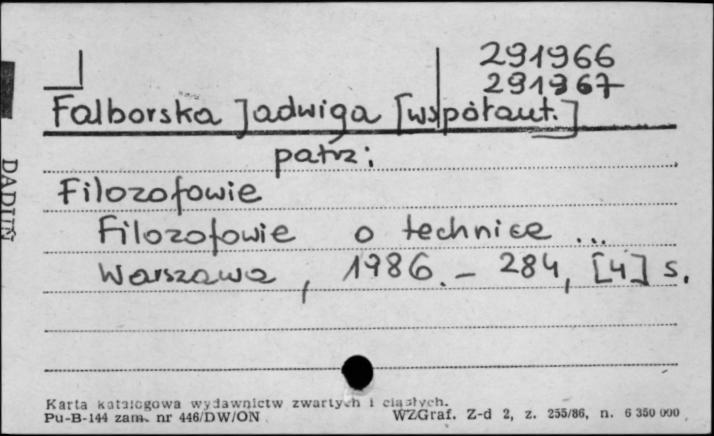 291966
291967
Falborska Jadwiga [współaut.]
patrz:
Filozofowie
Filozofowie o technice ...
Warszawa, 1986. - 284, [4] s.
DADIUŃ
Karta katalogowa wydawnictw zwartych i ciągłych.
Pu-B-144 zam. nr 446/DW/ON WZGraf. Z-d 2, z. 255/86, n. 6 350 000